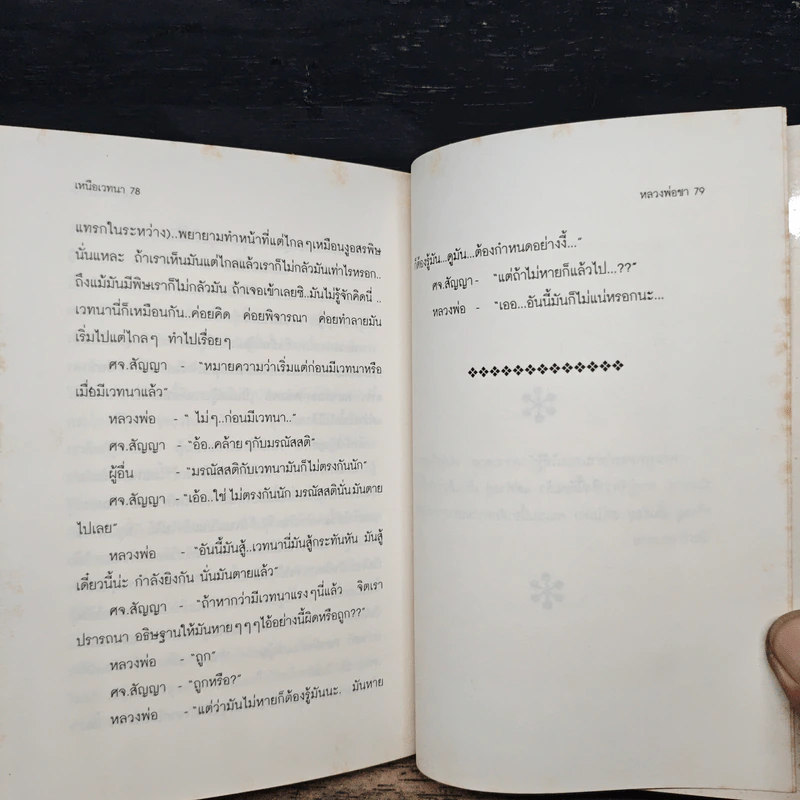 เหนือเวทนา 78
แทรกในระหว่าง)..พยายามทำหน้าที่แต่ไกลๆเหมือนงูอสรพิษ
นั่นแหละ ถ้าเราเห็นมันแต่ไกลแล้วเราก็ไม่กลัวมันเท่าไรหรอก..
ถึงแม้มันมีพิษเราก็ไม่กลัวมัน ถ้าเจอเข้าเลยซิ..มันไม่รู้จักคิดนี่ ..
เวทนานี่ก็เหมือนกัน..ค่อยคิด ค่อยพิจารณา ค่อยทำลายมัน
เริ่มไปแต่ไกลๆ ทำไปเรื่อยๆ
ศจ.สัญญา - "หมายความว่าเริ่มแต่ก่อนมีเวทนาหรือ
เมื่อมีเวทนาแล้ว"
หลวงพ่อ - " ไม่ๆ..ก่อนมีเวทนา.."
ศจ.สัญญา - "อ้อ..คล้ายๆกับมรณัสสติ"
ผู้อื่น - "มรณัสสติกับเวทนามันก็ไม่ตรงกันนัก"
ศจ.สัญญา - "เอ้อ..ใช่ ไม่ตรงกันนัก มรณัสสตินั่นมันตาย
ไปเลย"
หลวงพ่อ - "อันนี้มันสู้..เวทนานี่มันสู้กระทันหัน มันสู้
เดี๋ยวนี้น่ะ กำลังยิงกัน นั่นมันตายแล้ว"
ศจ.สัญญา - "ถ้าหากว่ามีเวทนาแรงๆนี่แล้ว จิตเรา
ปรารถนา อธิษฐานให้มันหายๆๆๆไอ้อย่างนี้ผิดหรือถูก??"
หลวงพ่อ - "ถูก"
ศจ.สัญญา - "ถูกหรือ?"
หลวงพ่อ - "แต่ว่ามันไม่หายก็ต้องรู้มันนะ. มันหาย
หลวงพ่อชา 79
ก็ต้องรู้มัน...ดูมัน...ต้องกำหนดอย่างงี้..."
ศจ.สัญญา - "แต่ถ้าไม่หายก็แล้วไป...??"
หลวงพ่อ - "เออ...อันนี้มันก็ไม่แน่หรอกนะ...